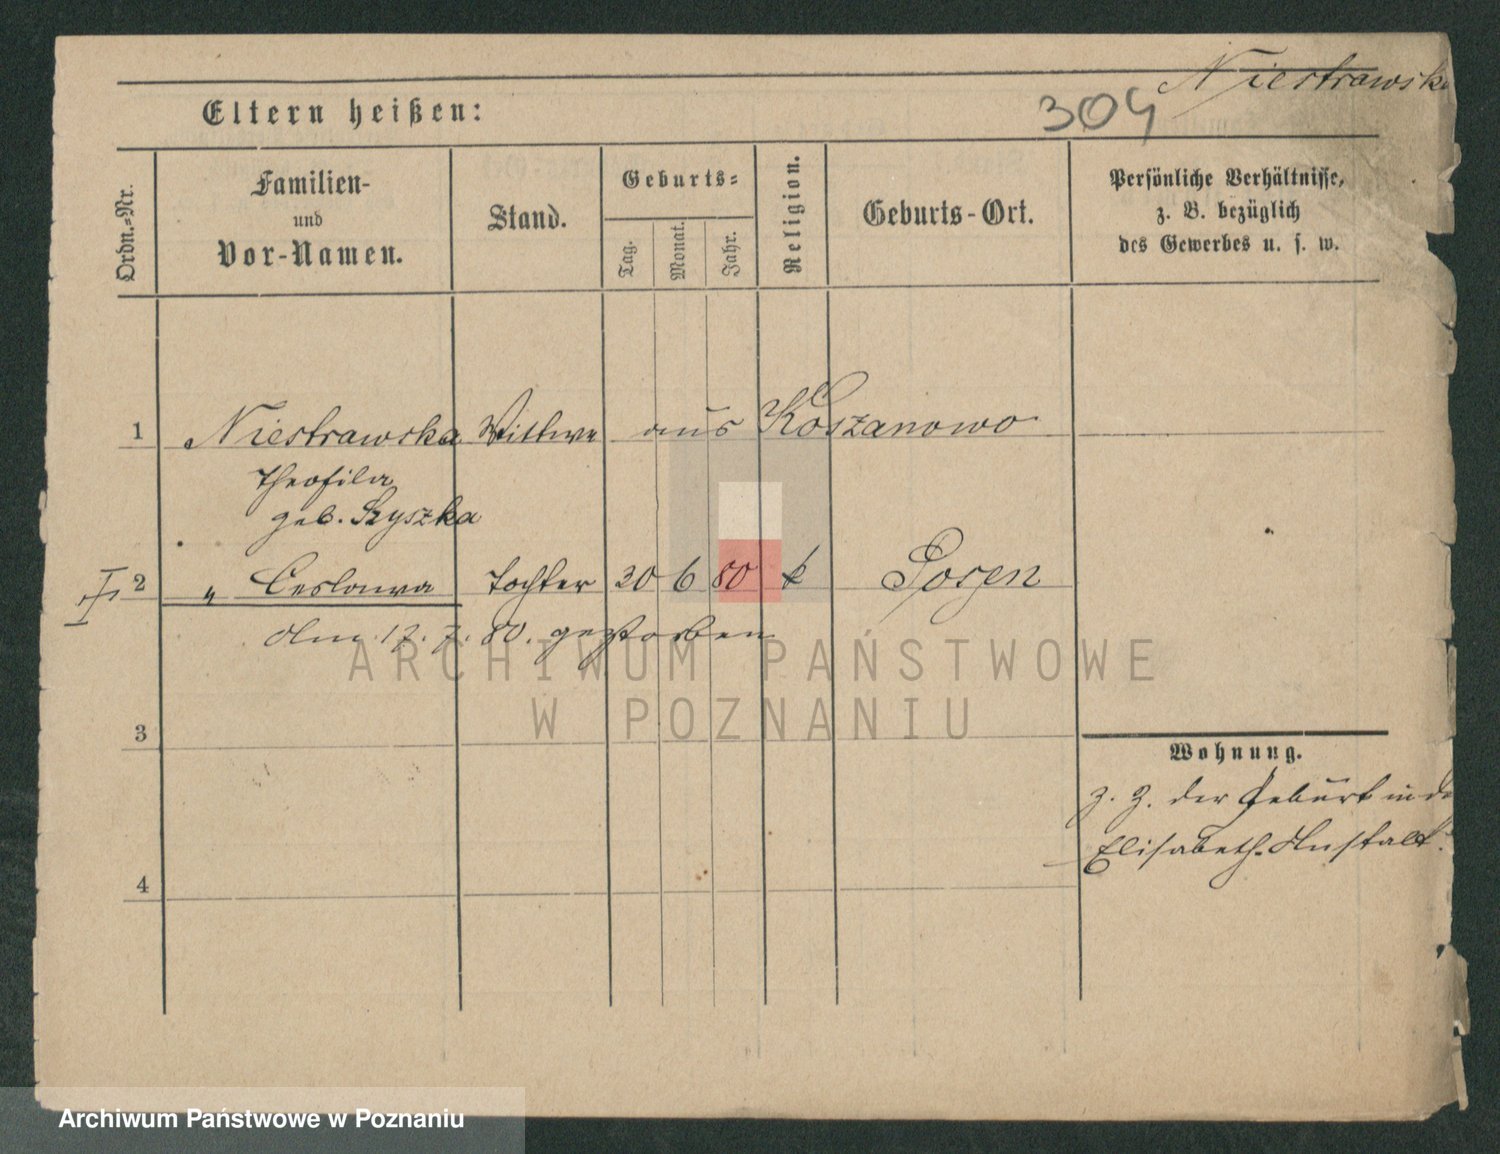 Niestrawska
304
Eltern heißen:
Ordn.-Nr.
Familien-
und
Vor-Namen.
Stand.
Geburts-
Tag.
Monat.
Jahr.
Religion.
Geburts-Ort.
Persönliche Verhältnisse,
z. B. bezüglich
des Gewerbes u. s. w.
1 Niestrawska Wittwe aus Koszanowo
Theofila
geb. Szyszka
2 " Ceslawa Tochter 30 6 80 k Posen
Am 17. 7. 80. gestorben
3
4
Wohnung.
z. Z. der Geburt in der
Elisabeth-Anstalt.
ARCHIWUM PAŃSTWOWE
W POZNANIU
Archiwum Państwowe w Poznaniu